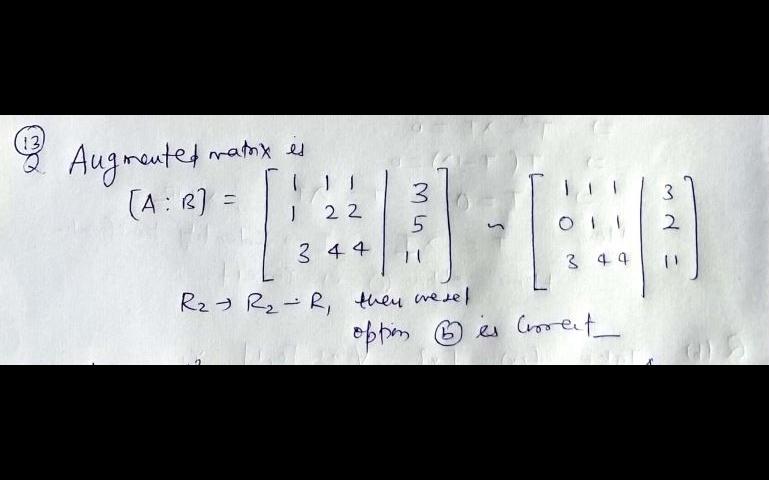 13
Q Augmented matrix is
[A : B] = [ 1 1 1 | 3 ] ~ [ 1 1 1 | 3 ]
[ 1 2 2 | 5 ] [ 0 1 1 | 2 ]
[ 3 4 4 | 11 ] [ 3 4 4 | 11 ]
R2 → R2 - R1 then we get
option (b) is Correct